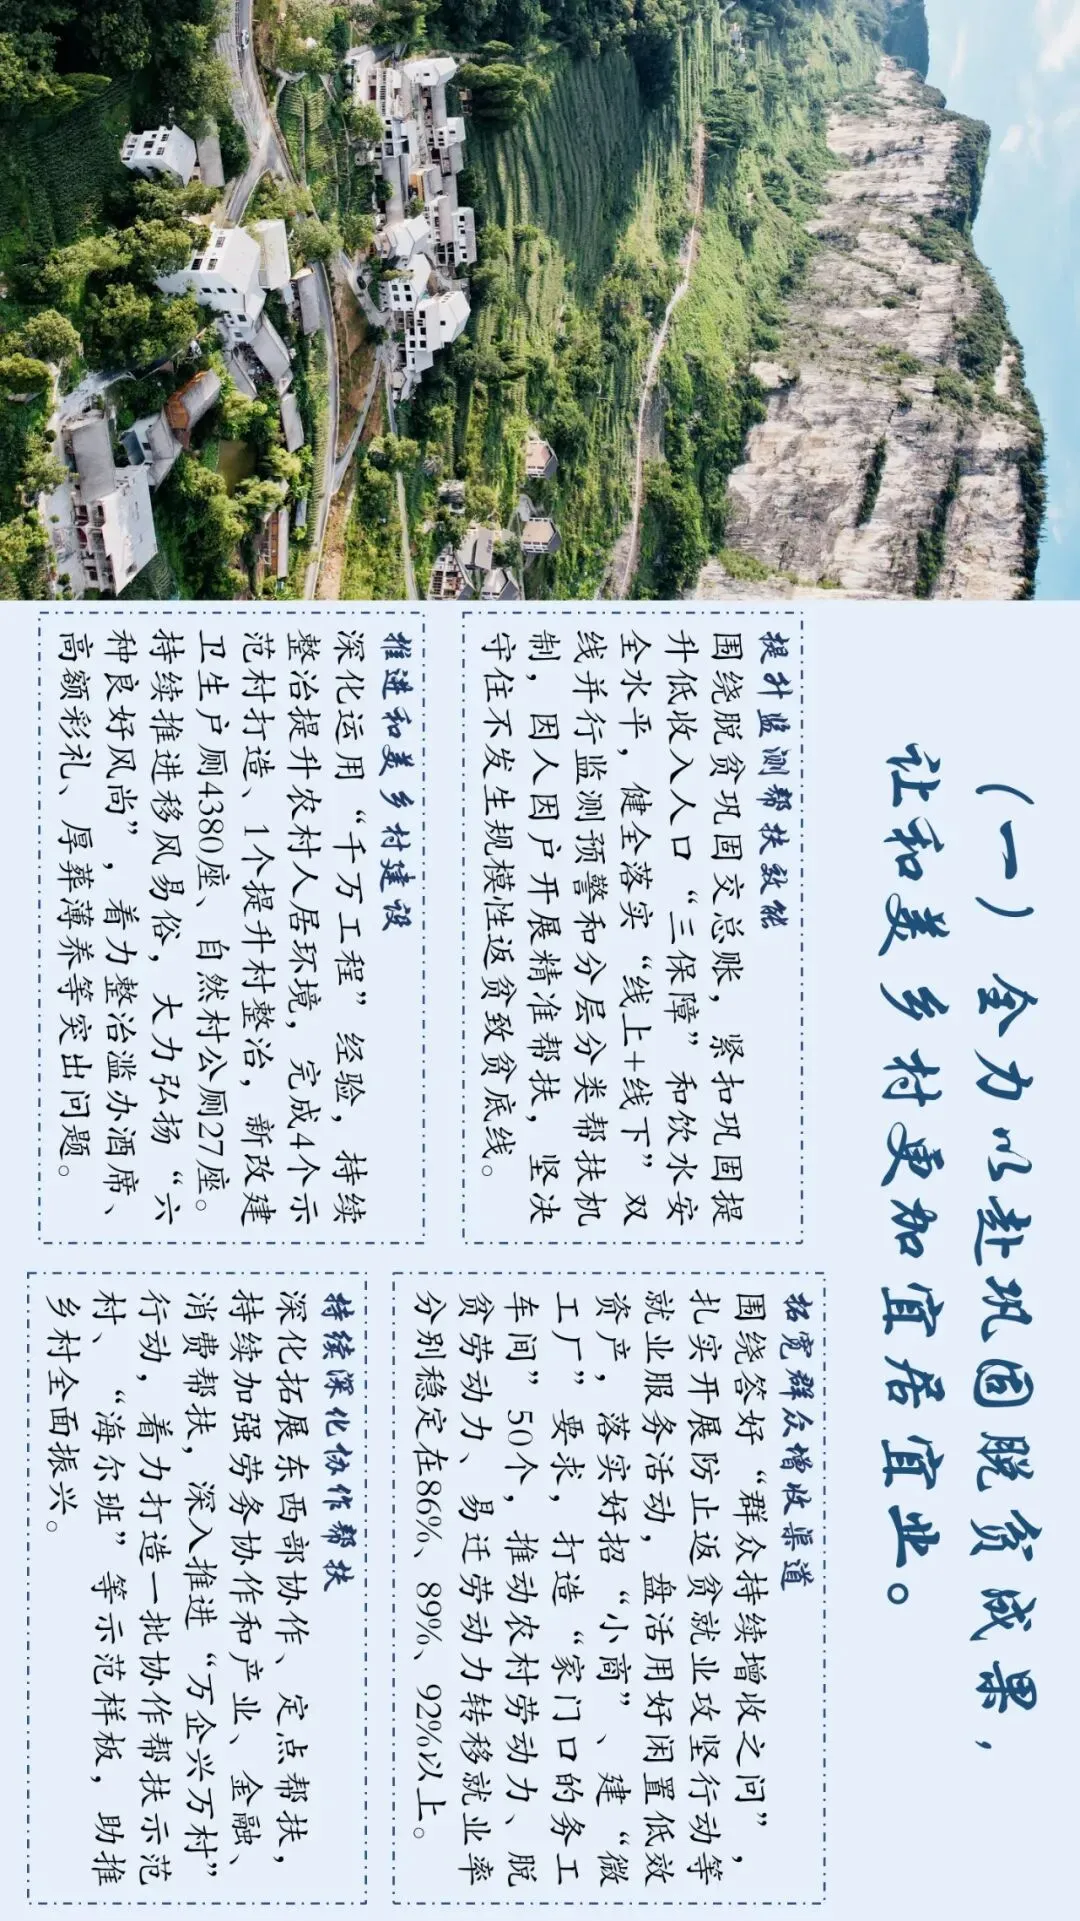 （一）全力以赴巩固脱贫成果，
让和美乡村更加宜居宜业。
提升监测帮扶效能
围绕脱贫巩固交总账，紧扣巩固提
升低收入人口“三保障”和饮水安
全水平，健全落实“线上+线下”双
线并行监测预警和分层分类帮扶机
制，因人因户开展精准帮扶，坚决
守住不发生规模性返贫致贫底线。
拓宽群众增收渠道
围绕答好“群众持续增收之问”，
扎实开展防止返贫就业攻坚行动等
就业服务活动，盘活用好闲置低效
资产，落实好招“小商”、建“微
工厂”要求，打造“家门口的务工
车间”50个，推动农村劳动力、脱
贫劳动力、易迁劳动力转移就业率
分别稳定在86%、89%、92%以上。
推进和美乡村建设
深化运用“千万工程”经验，持续
整治提升农村人居环境，完成4个示
范村打造、1个提升村整治，新改建
卫生户厕4380座、自然村公厕27座。
持续推进移风易俗，大力弘扬“六
种良好风尚”，着力整治滥办酒席、
高额彩礼、厚葬薄养等突出问题。
持续深化协作帮扶
深化拓展东西部协作、定点帮扶，
持续加强劳务协作和产业、金融、
消费帮扶，深入推进“万企兴万村”
行动，着力打造一批协作帮扶示范
村、“海尔班”等示范样板，助推
乡村全面振兴。